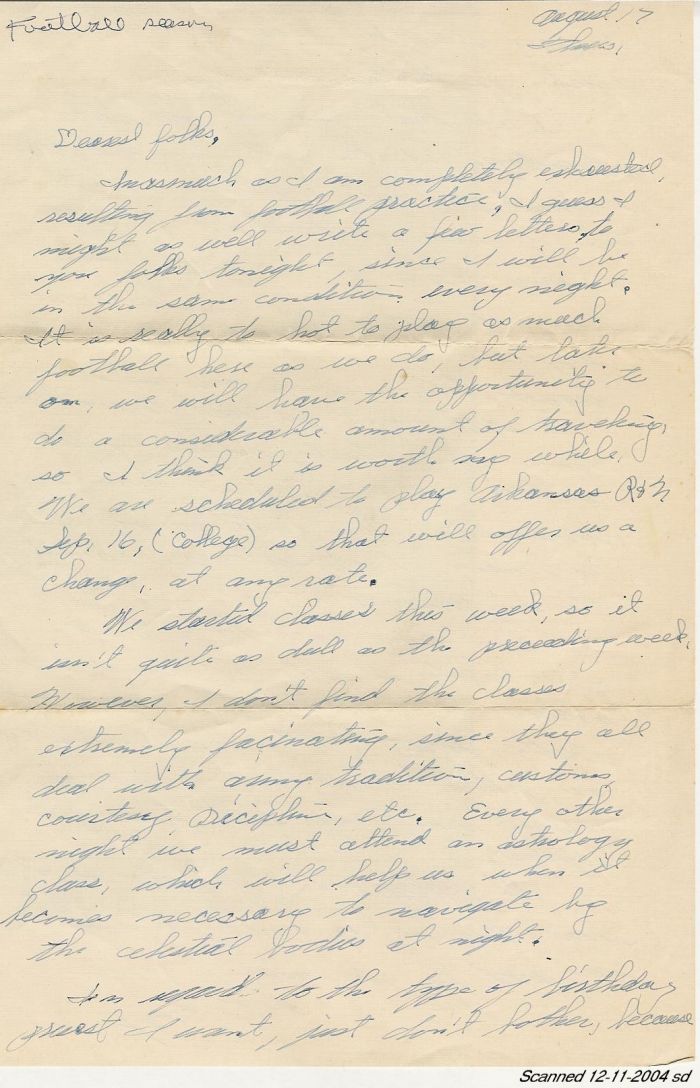 Football season
August 17
Thurs.
Dearest folks,
Inasmuch as I am completely exhausted,
resulting from football practice, I guess I
might as well write a few letters, to
you folks tonight, since I will be
in the same condition every night.
It is really to hot to play as much
football here as we do, but later
on, we will have the opportunity to
do a considerable amount of traveling,
so I think it is worth my while.
We are scheduled to play Arkansas
Sep. 16, (college) so that will offer us a
change, at any rate.
We started classes this week, so it
isn't quite as dull as the preceeding week.
However, I don't find the classes
extremely facinating, since they all
deal with army tradition, customs,
courtesy, discipline, etc. Every other
night we must attend an astrology
class, which will help us when it
becomes necessary to navigate by
the celestial bodies at night.
In regard to the type of birthday
present I want, just don't bother, because
Scanned 12-11-2004 sd